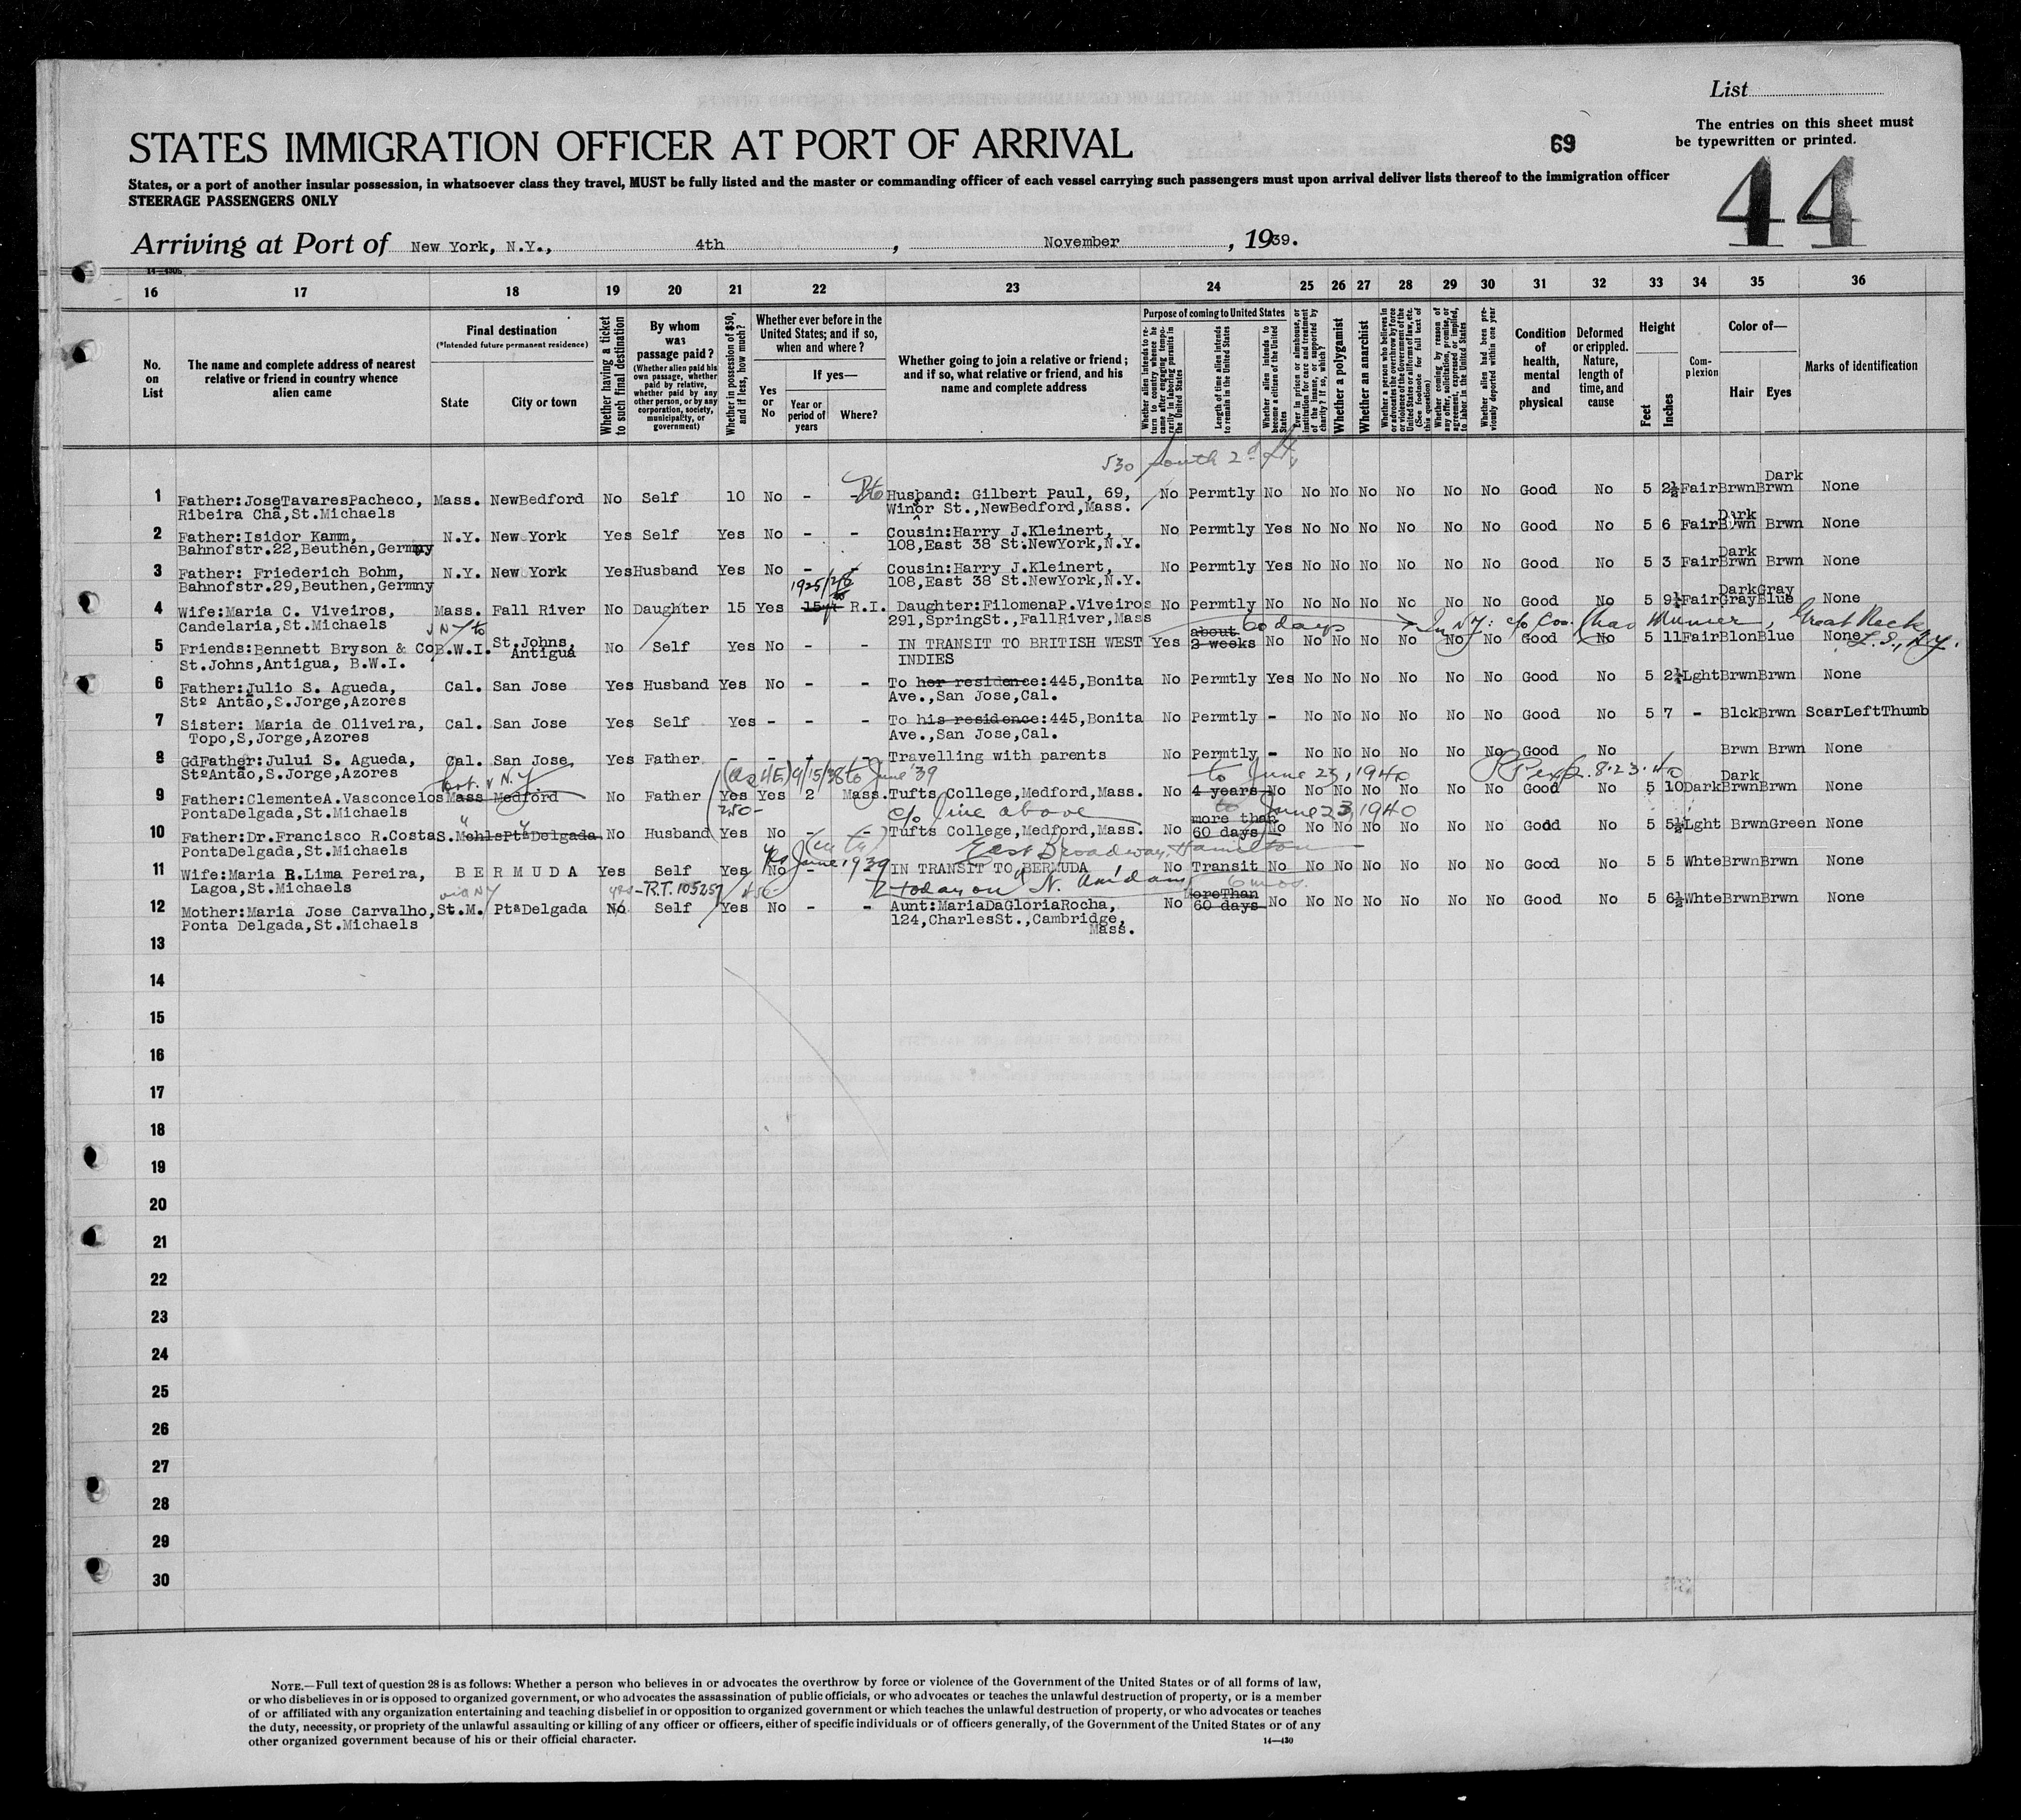 List
The entries on this sheet must
be typewritten or printed.
STATES IMMIGRATION OFFICER AT PORT OF ARRIVAL
69
44
States, or a port of another insular possession, in whatsoever class they travel, MUST be fully listed and the master or commanding officer of each vessel carrying such passengers must upon arrival deliver lists thereof to the immigration officer
STEERAGE PASSENGERS ONLY
Arriving at Port of New York, N.Y., 4th , November , 1939.
16 17 18 19 20 21 22 23 24 25 26 27 28 29 30 31 32 33 34 35 36
No. on List
The name and complete address of nearest relative or friend in country whence alien came
Final destination
(*Intended future permanent residence)
State
City or town
Whether having a ticket to such final destination
By whom was passage paid?
(Whether alien paid his own passage, whether paid by relative, whether paid by any other person, or by any corporation, society, municipality, or government)
Whether in possession of $50, and if less, how much?
Whether ever before in the United States; and if so, when and where?
Yes or No
If yes—
Year or period of years
Where?
Whether going to join a relative or friend; and if so, what relative or friend, and his name and complete address
Purpose of coming to United States
Whether alien intends to return to country whence he came after engaging temporarily in laboring pursuits in the United States
Length of time alien intends to remain in the United States
Whether alien intends to become a citizen of the United States
Ever in prison or almshouse, or institution for care and treatment of the insane, or supported by charity? If so, which?
Whether a polygamist
Whether an anarchist
Whether a person who believes in or advocates the overthrow by force or violence of the Government of the United States or all forms of law, etc. (See footnote for full text of this question)
Whether coming by reason of any offer, solicitation, promise, or agreement, expressed or implied, to labor in the United States
Whether alien had been previously deported within one year
Condition of health, mental and physical
Deformed or crippled. Nature, length of time, and cause
Height
Feet
Inches
Complexion
Color of—
Hair
Eyes
Marks of identification
530 South 2d St,
Dark
1 Father:JoseTavaresPacheco, Mass. NewBedford No Self 10 No - - Husband: Gilbert Paul, 69, No Permtly No No No No No No No Good No 5 2½ Fair Brwn Brwn None
Ribeira Chã,St.Michaels Winor St.,NewBedford,Mass.
Dark
2 Father:Isidor Kamm, N.Y. New York Yes Self Yes No - - Cousin:Harry J.Kleinert, No Permtly Yes No No No No No No Good No 5 6 Fair Brwn Brwn None
Bahnofstr.22,Beuthen,Germny 108,East 38 St.NewYork,N.Y.
Dark
3 Father: Friederich Bohm, N.Y. New York Yes Husband Yes No - - Cousin:Harry J.Kleinert, No Permtly Yes No No No No No No Good No 5 3 Fair Brwn Brwn None
Bahnofstr.29,Beuthen,Germny 108,East 38 St.NewYork,N.Y.
1925/28
DarkGray
4 Wife:Maria C. Viveiros, Mass. Fall River No Daughter 15 Yes 15yr R.I. Daughter:FilomenaP.Viveiros No Permtly No No No No No No No Good No 5 9½ Fair Gray Blue None
Candelaria,St.Michaels 291,SpringSt.,FallRiver,Mass
v NY to
60 days In NY: c/o Great Neck L.I., N.Y.
5 Friends:Bennett Bryson & Co B.W.I. St.Johns, Antigua No Self Yes No - - IN TRANSIT TO BRITISH WEST Yes about 2 weeks No No No No No No No Good No 5 11 Fair Blon Blue None
St.Johns,Antigua, B.W.I. INDIES
6 Father:Julio S. Agueda, Cal. San Jose Yes Husband Yes No - - To her residence:445,Bonita No Permtly Yes No No No No No No Good No 5 2½ Lght Brwn Brwn None
Stº Antão,S.Jorge,Azores Ave.,San Jose,Cal.
7 Sister: Maria de Oliveira, Cal. San Jose Yes Self Yes - - - To his residence:445,Bonita No Permtly - No No No No No No Good No 5 7 - Blck Brwn ScarLeftThumb
Topo,S,Jorge,Azores Ave.,San Jose,Cal.
8 GdFather:Jului S. Agueda, Cal. San Jose Yes Father - - - - Travelling with parents No Permtly - No No No No No No Good No Brwn Brwn None
StºAntão,S.Jorge,Azores
9/15/38 to June '39 to June 23, 1940 PP exp. 8.23.40
Dark
9 Father:ClementeA.Vasconcelos Mass Medford No Father Yes Yes 2 Mass. Tufts College,Medford,Mass. No 4 years No No No No No No No Good No 5 10 Dark Brwn Brwn None
PontaDelgada,St.Michaels
250- c/o line above to June 23, 1940
10 Father:Dr.Francisco R.Costa S.Mchls PtªDelgada No Husband Yes No - - Tufts College,Medford,Mass. No more than 60 days No No No No No No No Good No 5 5½ Lght Brwn Green None
PontaDelgada,St.Michaels
June 1939 East Broadway, Hamilton
11 Wife:Maria R.Lima Pereira, BERMUDA Yes Self Yes No - - IN TRANSIT TO BERMUDA No Transit No No No No No No No Good No 5 5 Whte Brwn Brwn None
Lagoa,St.Michaels
via NY yes - R.T. 105257 today on N. Am'dam 6 mos.
12 Mother:Maria Jose Carvalho, St.M. PtªDelgada No Self Yes No - - Aunt:MariaDaGloriaRocha, No MoreThan 60 days No No No No No No No Good No 5 6½ Whte Brwn Brwn None
Ponta Delgada,St.Michaels 124,CharlesSt.,Cambridge, Mass.
13
14
15
16
17
18
19
20
21
22
23
24
25
26
27
28
29
30
NOTE.—Full text of question 28 is as follows: Whether a person who believes in or advocates the overthrow by force or violence of the Government of the United States or of all forms of law,
or who disbelieves in or is opposed to organized government, or who advocates the assassination of public officials, or who advocates or teaches the unlawful destruction of property, or is a member
of or affiliated with any organization entertaining and teaching disbelief in or opposition to organized government or which teaches the unlawful destruction of property, or who advocates or teaches
the duty, necessity, or propriety of the unlawful assaulting or killing of any officer or officers, either of specific individuals or of officers generally, of the Government of the United States or of any
other organized government because of his or their official character.
14—430